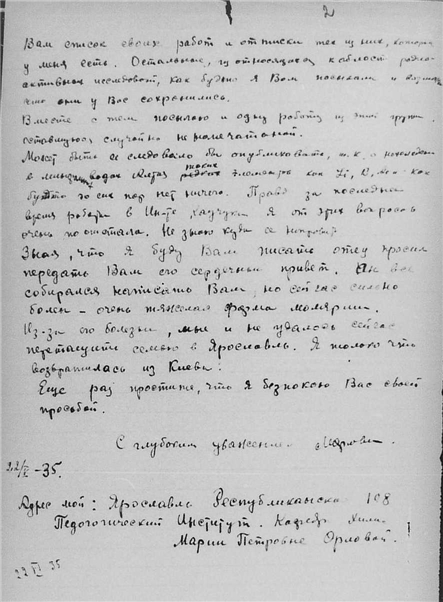 2
Вам список своих работ и оттиски тех из них, которые
у меня есть. Остальные, из относящихся к области радио-
активных исследований, как будто я Вам посылала и
они у Вас сохранились.
Вместе с тем посылаю и одну работу из этой группы,
оставшуюся случайно не напечатанной.
Может быть ее следовало бы опубликовать, т.к. о нахождении
в водах Алтая таких редких элементов как Li,
будто до сих пор нет ничего. Правда за последнее
время работы в Ин-те я от этих вопросов
очень отстала. Не знаю куда ее направить
Зная, что я буду Вам писать отец просил
передать Вам его сердечный привет. Он все
собирался написать Вам, но сейчас сильно
болен – очень тяжелая форма молярии.
Из-за его болезни, мне и не удалось сейчас
перетащить семью в Ярославль. Я только что
возвратилась из Киева.
Еще раз простите, что я безпокою Вас своей
просьбой.
С глубоким уважением МОрлова.
-35.
Адрес мой: Ярославль Республиканская 108
Педогогический Институт. Кафедра Химии
Марии Петровне Орловой.
35